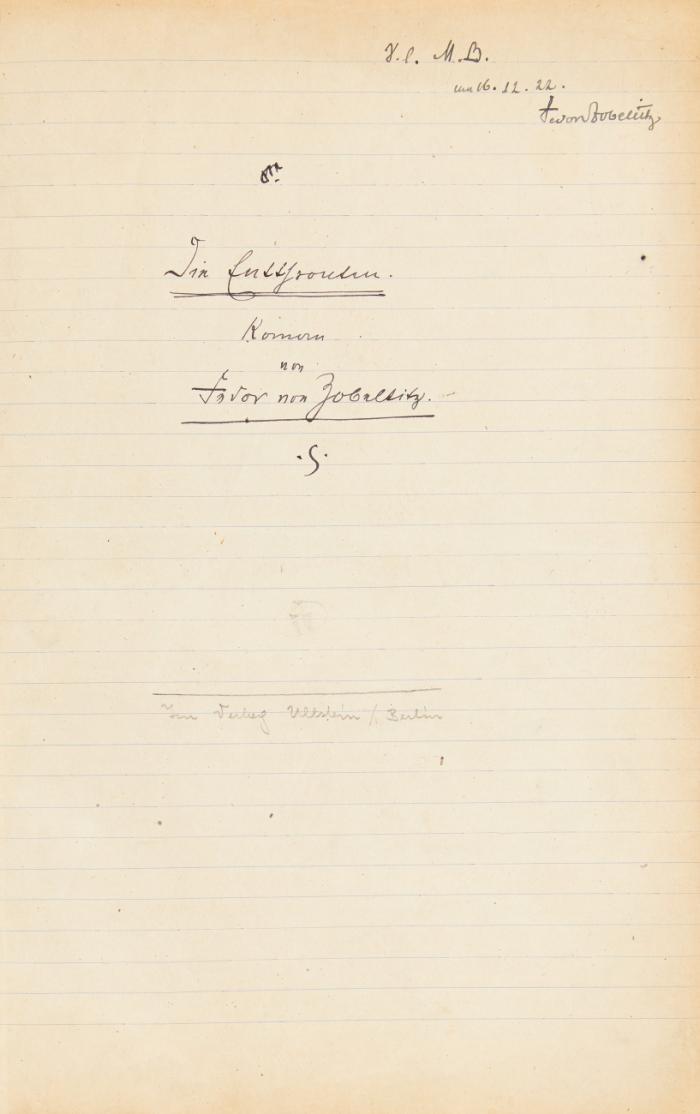 S. l. M. B.
am 16. 12. 22.
Fedor von Zobeltitz
Die Entthronten.
Roman
von
Fedor von Zobeltitz.
Im Verlag Ullstein / Berlin